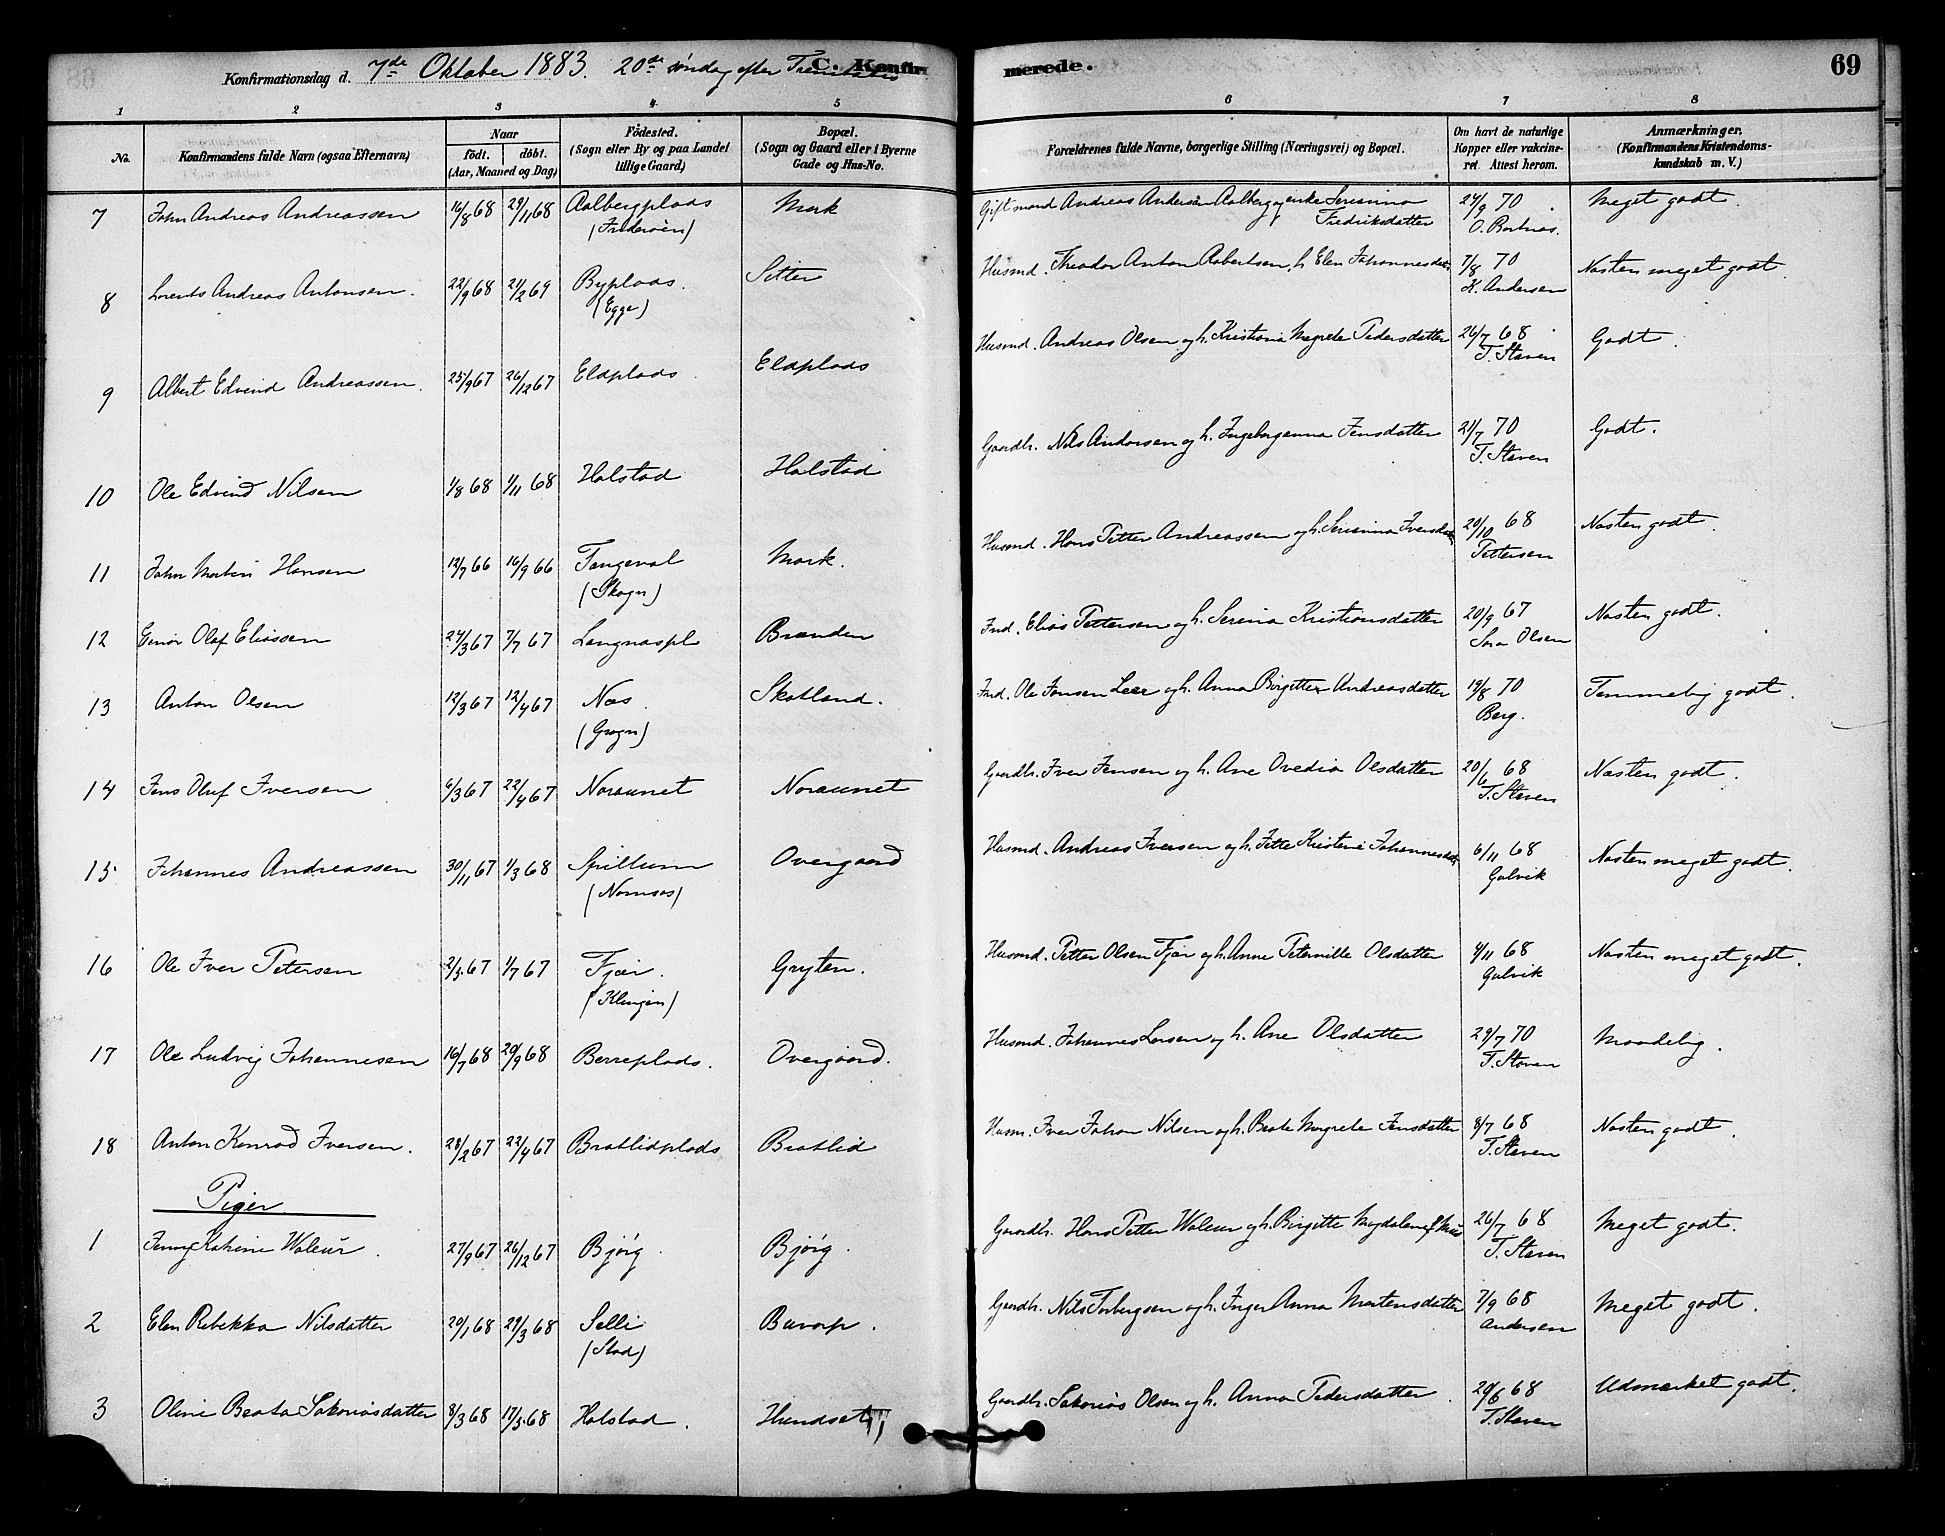 Konfirmationsdag d. 7de Oktober 1883. 20de søndag efter Trinitatis C. Konfirmerede. 69
1 2 3 4 5 6 7 8
No. Konfirmandens fulde Navn (ogsaa Efternavn) Naar født. døbt. (Aar, Maaned og Dag) Fødested. (Sogn eller By og paa Landet tillige Gaard) Bopæl. (Sogn og Gaard eller i Byerne Gade og Hus-No. Forældrenes fulde Navne, borgerlige Stilling (Næringsvei) og Bopæl. Om havt de naturlige Kopper eller vakcineret. Attest herom. Anmærkninger. (Konfirmandens Kristendomskundskab m. V.)
7 John Andreas Andreassen 16/8 68 29/11 68 Aalbergplads Mork Gift mand Andreas Andersen Aalberg og enke Serianna Fredriksdatter 24/9 70 Meget godt.
8 Lorents Andreas Antonsen. 22/9 68 21/2 69 Byplads. (Egge) Sitter Husmd. Theodor Anton Robertsen, h. Elen Johannesdatr 7/8 70 K. Andersen Næsten meget godt
9 Albert Edvind Andreassen. 25/9 67 26/12 67 Eldplads Eldplads Husmd. Andreas Olsen og h. Kristiana Margrete Pedersdatter 26/7 68 T. Staven Godt.
10 Ole Edvind Nilsen 1/8 68 1/11 68 Halstad Halstad Gaardbr. Nils Andersen og h. Ingeborganna Jensdatter 21/7 70 T. Staven Godt.
11 John Martin Hansen 12/7 66 16/9 66 Tangeval (Skogn) Mork. Husmd. Hans Petter Andreassen og h. Serianna Iversdatr 20/10 68 Pettersen Næsten godt.
12 Einar Olaf Eliassen 24/3 67 7/7 67 Langnæspl Brænden Ind. Elias Pettersen og h. Serina Kristiansdatter 20/9 67 Sara Olsen Næsten godt.
13 Anton Olsen 12/3 67 12/4 67 Næs. Skotland. Ind. Ole Jonsen Leer og h. Anna Birgitte Andreasdatter 19/8 70 Berg. Temmelig godt.
14 Jens Oluf Iversen 6/3 67 22/4 67 Noraunet Noraunet Gaardbr. Iver Jensen og h. Ane Ovedia Olsdatter 20/6 68 T. Staven Næsten godt.
15 Johannes Andreassen 30/11 67 1/3 68 Spillum (Namsos) Overgaard Husmd. Andreas Iversen og h. Jette Kristine Johannesdatr 6/11 68 Galvik Næsten meget godt.
16 Ole Iver Petersen 2/3 67 1/7 67 Fjær. (Klingen) Gryten. Husmd. Petter Olsen Fjær og h. Anne Petternille Olsdatter 4/11 68 Galvik Næsten meget godt.
17 Ole Ludvig Johannesen 16/7 68 20/9 68 Berreplads. Overgaard. Husmd. Johannes Larsen og h. Ane Olsdatter 29/7 70 T. Staven Maadelig.
18 Anton Konrad Iversen. 28/2 67 22/4 67 Bratlidplads Bratlid Husm. Iver Johan Nilsen og h. Beate Margrete Jensdatter 8/7 68 T. Staven Næsten godt.
Piger
1 Jenny Katrine Waleur. 27/9 67 26/12 67 Bjørg. Bjørg. Gaardbr. Hans Petter Waleur og h. Birgitte Magdalene 26/7 68 T. Staven Meget godt.
2 Elen Rebekka Nilsdatter 20/1 68 29/3 68 Selli (Stod) Buvarp. Gaardbr. Nils Torbergsen og h. Inger Anna Martensdatter 7/9 68 Andersen Meget godt.
3 Oline Beata Sakariasdatter 8/3 68 17/5 68 Halstad. Hundset Gaardbr. Sakarias Olsen og h. Anna Pedersdatter 20/6 68 T. Staven Udmærket godt.